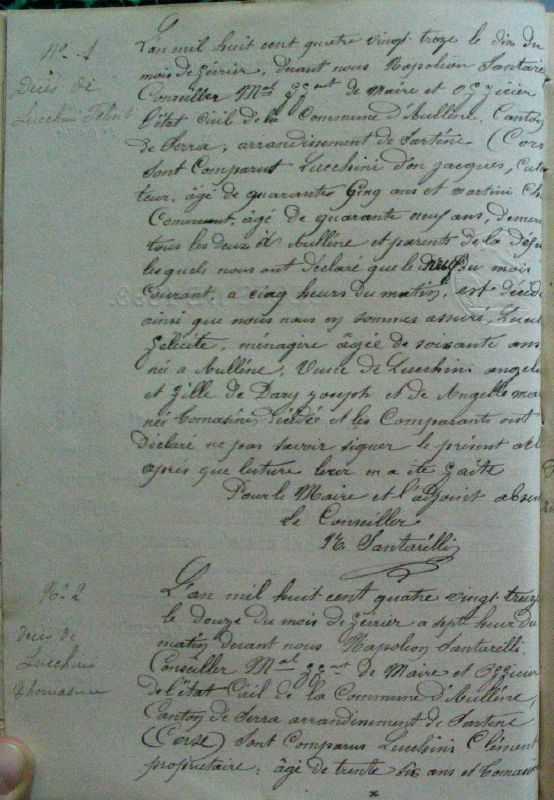 N° 1
Décès de
Lucchini Félicité
L'an mil huit cent quatre vingt troze le dix du
mois de février, devant nous Napoléon Santare
Conseiller Mal ffont de Maire et officier
l'état Civil de la Commune d'Aullène, Canton
de Serra, arrondinement de Sartène (Cors
Sont Comparut Lucchini don jacques, Cult
teur, âgé de quarante Cinq ans et martini Ch
âgé de quarante neuf ans, demeu
tous les deux à Aullène et parents de la défu
lesquels nous ont déclaré que le neuf du mois
Courant, a cinq heurs du matin, est décédé
ainsi que nous nous en sommes assuré, Lucc
félicité, ménagère âgée de soixante ans
née a Aullène, Veuve de Lucchini angelo
et fille de Dary joseph et de Angelle mar
née Tomasini, décédée et les Comparants ont
Déclaré ne pas savoir signer le présent act
après que lecture leur en a été faite
Pour le Maire et l'adjoint absen
Le Conseiller
N. Santarelli
N° 2
décès de
Lucchini
thomasine
L'an mil huit cent quatre vingt treize
le douze du mois de février a sept heur du
matin devant nous Napoléon Santarelli
Conseiller Mal ffont de Maire et officier
de l'état Civil de la Commune d'Aullène,
Canton de Serra arrondinement de Sartène
(Corse) Sont Comparus Lucchini Clément
propriétaire, âgé de trente six ans et Tomasin